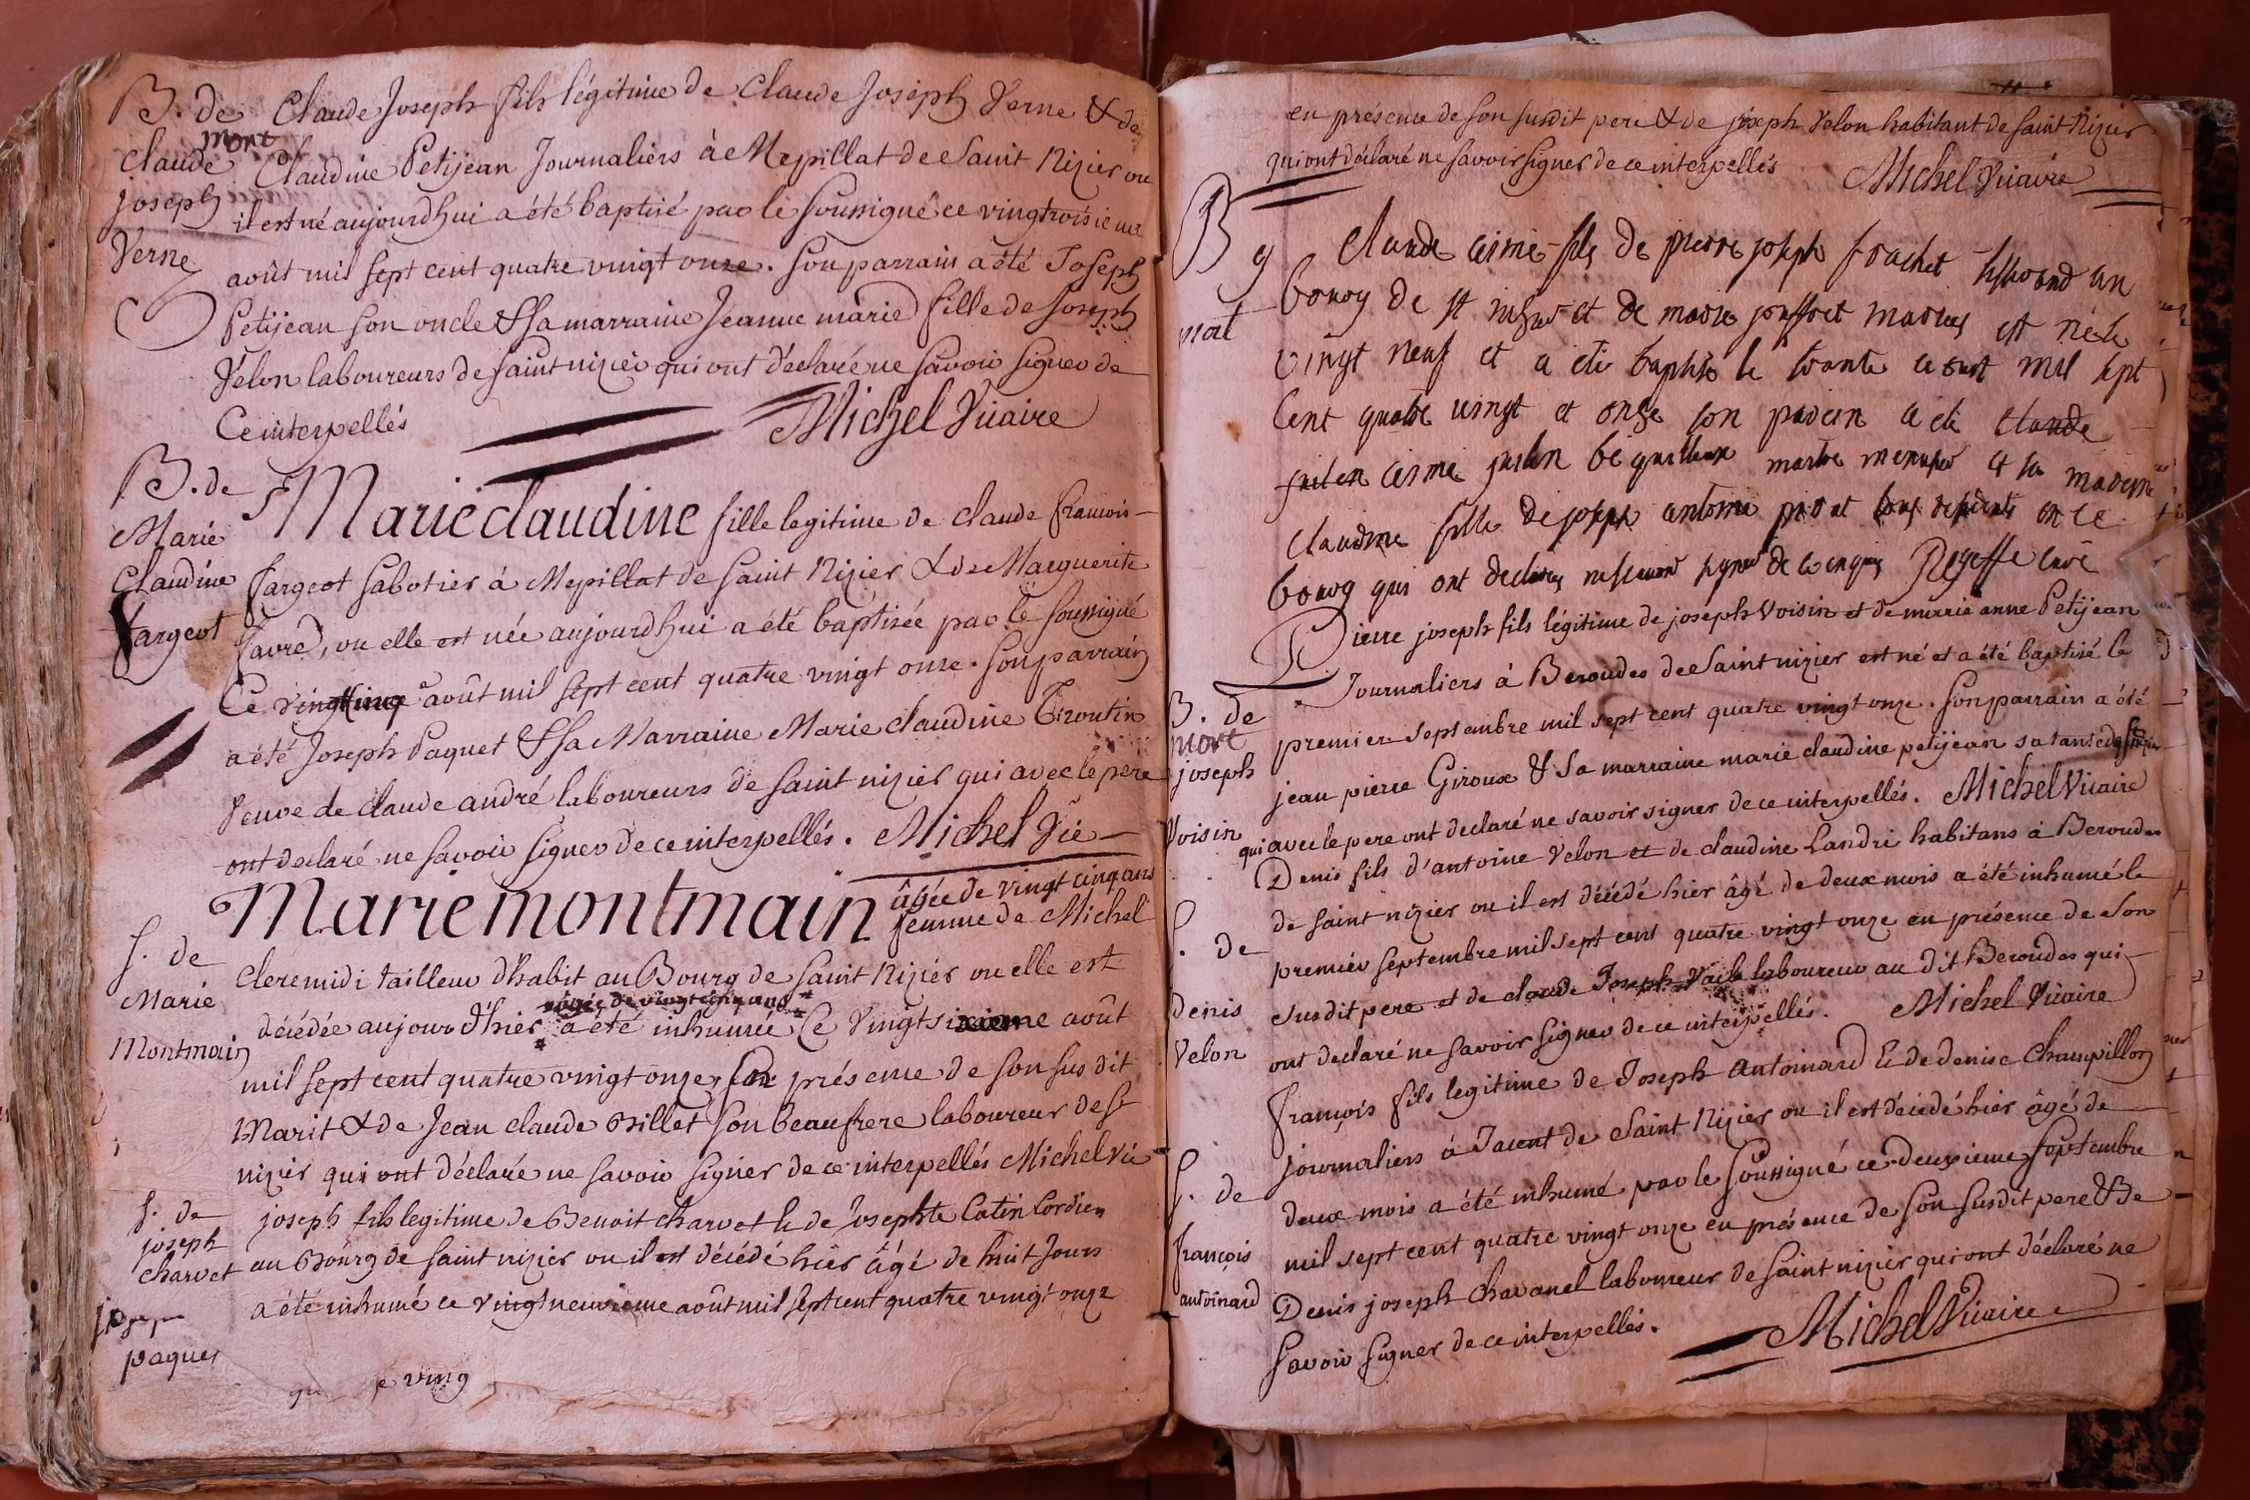 B. de
Claude
mort
Joseph
Verne
Claude Joseph fils légitime de Claude Joseph Verne & de
Claudine Petijean Journaliers à Mepillat de Saint Nizier ou
il est né aujourdhui a été baptisé par le soussigné ce vingtroisieme
août mil sept cent quatre vingt onze. Son parrain a été Joseph
Petijean son oncle & sa marraine Jeanne marie fille de Joseph
Velon laboureurs de saint nizier qui ont déclaré ne savoir signer de
Ce interpellés
Michel Vicaire
B. de
Marie
Claudine
fargeot
Marie claudine fille legitime de claude francois
fargeot sabotier à Mepillat de saint Nizier & de Marguerite
favre, ou elle est née aujourdhui a été baptisée par le soussigné
Ce vingtcinq août mil sept cent quatre vingt onze. Son parrain
a été Joseph Paquet & sa Marraine Marie claudine Tiroutin
Veuve de claude andré laboureurs de saint nizier qui avec le pere
ont declaré ne savoir signer de ce interpellés. Michel Vic
S. de
Marie
Montmain
Marie montmain âgée de vingt cinq ans
femme de Michel
cleremidi tailleur d'habit au Bourg de saint Nizier ou elle est
âgée de vingt cinq ans
décédée aujourd'hier a été inhumée Ce vingtsixieme août
mil sept cent quatre vingt onze, en présence de son sus dit
Marit & de Jean claude Billet son beaufrere laboureur de st
nizier qui ont déclaré ne savoir signer de ce interpellés Michel Vic
S. de
joseph
charvet
joseph fils legitime de Benoit charvet & de Josephte Catin Cordien
au Bourg de saint nizier ou il est décédé hier âgé de huit Jours
a été inhumé ce vingtneuvieme août mil sept cent quatre vingt onze
paques
ving
en présence de son susdit pere & de joseph Velon habitant de saint Nizier
qui ont déclaré ne savoir signer de ce interpellés Michel Vicaire
B
mort
Claude cesme fils de pierre joseph frachet tisserand au
bourg de st nizier et de marie jouffret mariés est né le
vingt neuf et a été baptisé le trante aoust mil sept
Cent quatre vingt et onze son parein a été claude
cesme julien maitre menusier et sa mareine
Claudine fille de joseph antoine tous residents en ce
bourg qui ont declarés ne scavoir signer de ce enquis Reyeffe curé
B. de
mort
joseph
Voisin
Pierre joseph fils légitime de joseph Voisin et de marie anne Petijean
Journaliers à Beroudes de Saint nizier est né et a été baptisé le
premier septembre mil sept cent quatre vingt onze. Son parrain a été
jean pierre Giroux & sa marraine marie claudine petijean sa tante
qui avec le pere ont declaré ne savoir signer de ce interpellés. Michel Vicaire
S. de
Denis
Velon
Denis fils d'antoine Velon et de claudine Landri habitans à Beroudes
de saint nizier ou il est décédé hier âgé de deux mois a été inhumé le
premier septembre mil sept cent quatre vingt onze en présence de son
susdit pere et de claude Joseph laboureur au dit Beroudes qui
ont declaré ne savoir signer de ce interpellés. Michel Vicaire
S. de
françois
antoinard
françois fils legitime de Joseph Antoinard & de denise Champillon
journaliers à Tacent de Saint Nizier ou il est décédé hier âgé de
deux mois a été inhumé par le soussigné ce deuxieme septembre
mil sept cent quatre vingt onze en présence de son susdit pere & de
Denis joseph Chavanel laboureur de saint nizier qui ont déclaré ne
savoir signer de ce interpellés.
Michel Vicaire